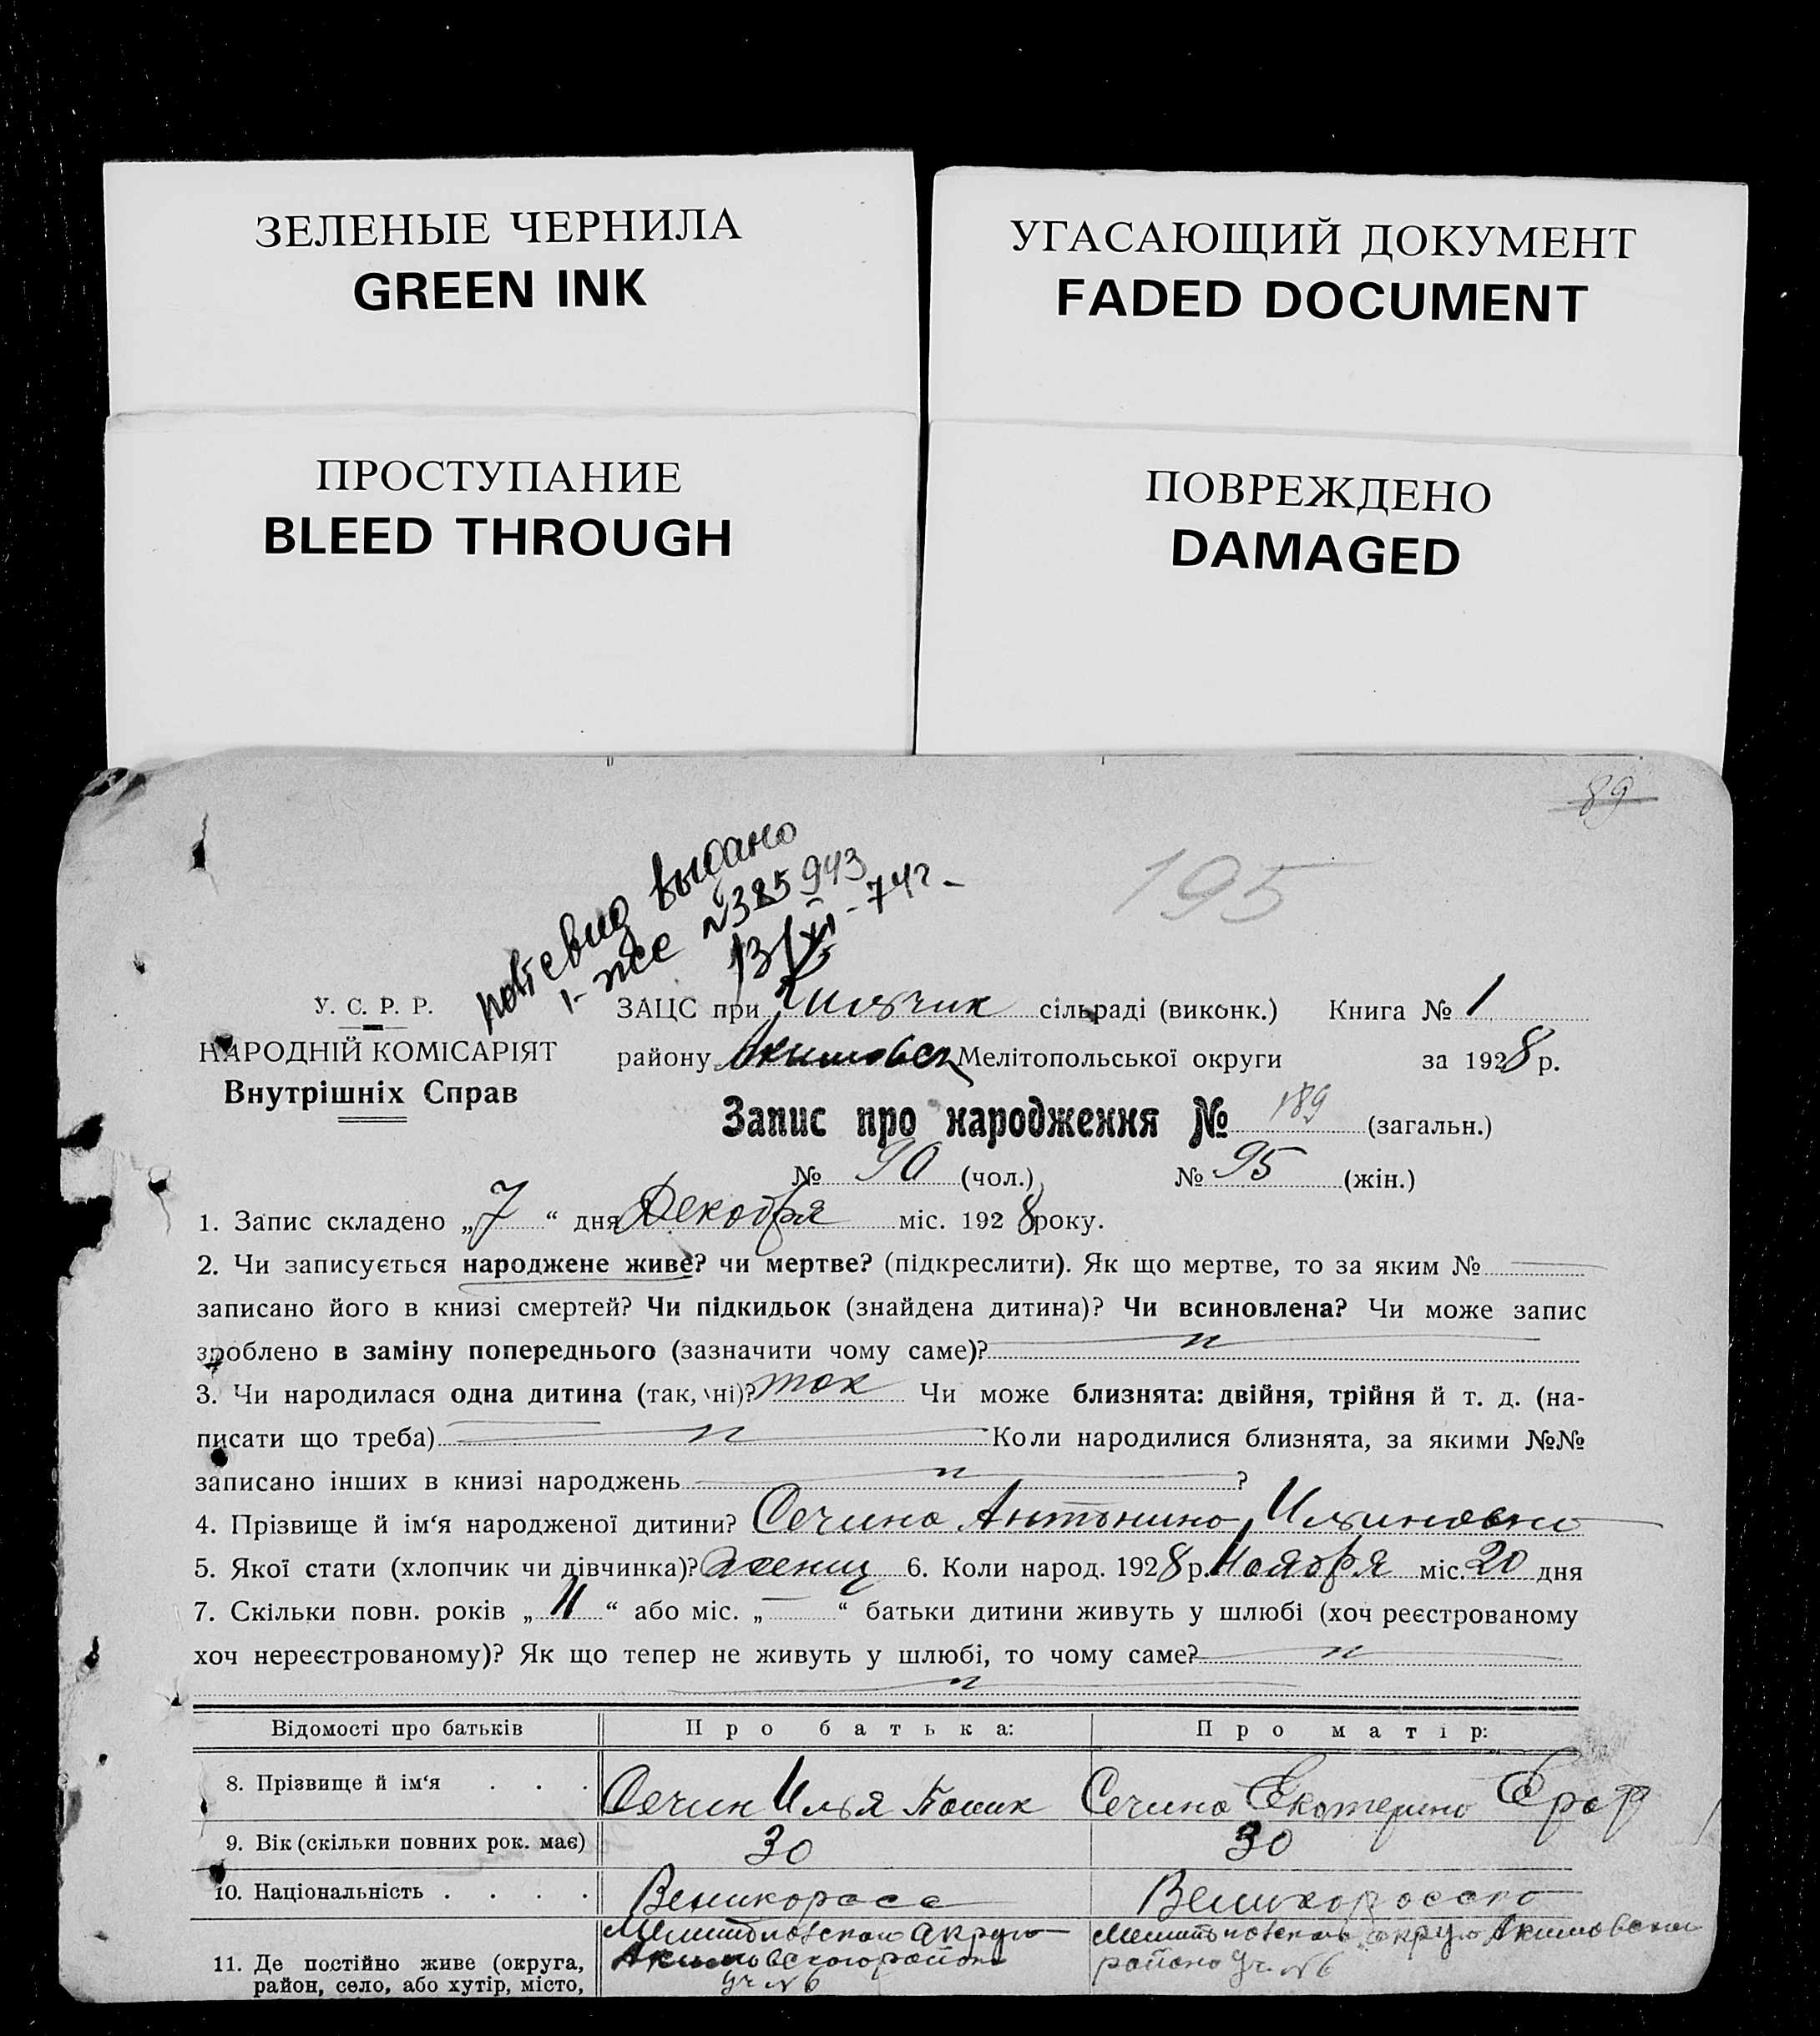 ЗЕЛЕНЫЕ ЧЕРНИЛА
GREEN INK
УГАСАЮЩИЙ ДОКУМЕНТ
FADED DOCUMENT
ПРОСТУПАНИЕ
BLEED THROUGH
ПОВРЕЖДЕНО
DAMAGED
89
195
выдано
№385943
13/ 74г-
У. С. Р. Р.
НАРОДНІЙ КОМІСАРІЯТ
Внутрішніх Справ
ЗАЦС при сільраді (виконк.) Книга № 1
району Акимовск Мелітопольської округи за 1928 р.
Запис про народження № 189 (загальн.)
№ 90 (чол.) № 95 (жін.)
1. Запис складено „7“ дня Декобря міс. 1928 року.
2. Чи записується народжене живе? чи мертве? (підкреслити). Як що мертве, то за яким №
записано його в книзі смертей? Чи підкидьок (знайдена дитина)? Чи всиновлена? Чи може запис
зроблено в заміну попереднього (зазначити чому саме)? "
3. Чи народилася одна дитина (так, ні)? так Чи може близнята: двійня, трійня й т. д. (на-
писати що треба) " Коли народилися близнята, за якими №№
записано інших в книзі народжень " ?
4. Прізвище й ім‘я народженої дитини? Сечина Антонина Ильиновна
5. Якої стати (хлопчик чи дівчинка)? женщ 6. Коли народ. 1928 р. Ноября міс. 20 дня
7. Скільки повн. років „11“ або міс. „—“ батьки дитини живуть у шлюбі (хоч реєстрованому
хоч нереєстрованому)? Як що тепер не живуть у шлюбі, то чому саме? "
"
Відомості про батьків Про батька: Про матір:
8. Прізвище й ім‘я . . . Сечин Илья Сечина Екатерина Ероф
9. Вік (скільки повних рок. має) 30 30
10. Національність . . . . Великоросс Великоросска
11. Де постійно живе (округа,
район, село, або хутір, місто,
Акимовского района
уч №6
района уч. №6